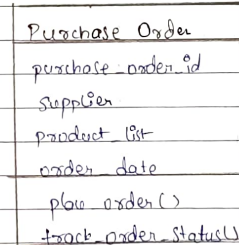 Purchase Order
purchase_order_id
supplier
product_list
order_date
place_order()
track_order_status()